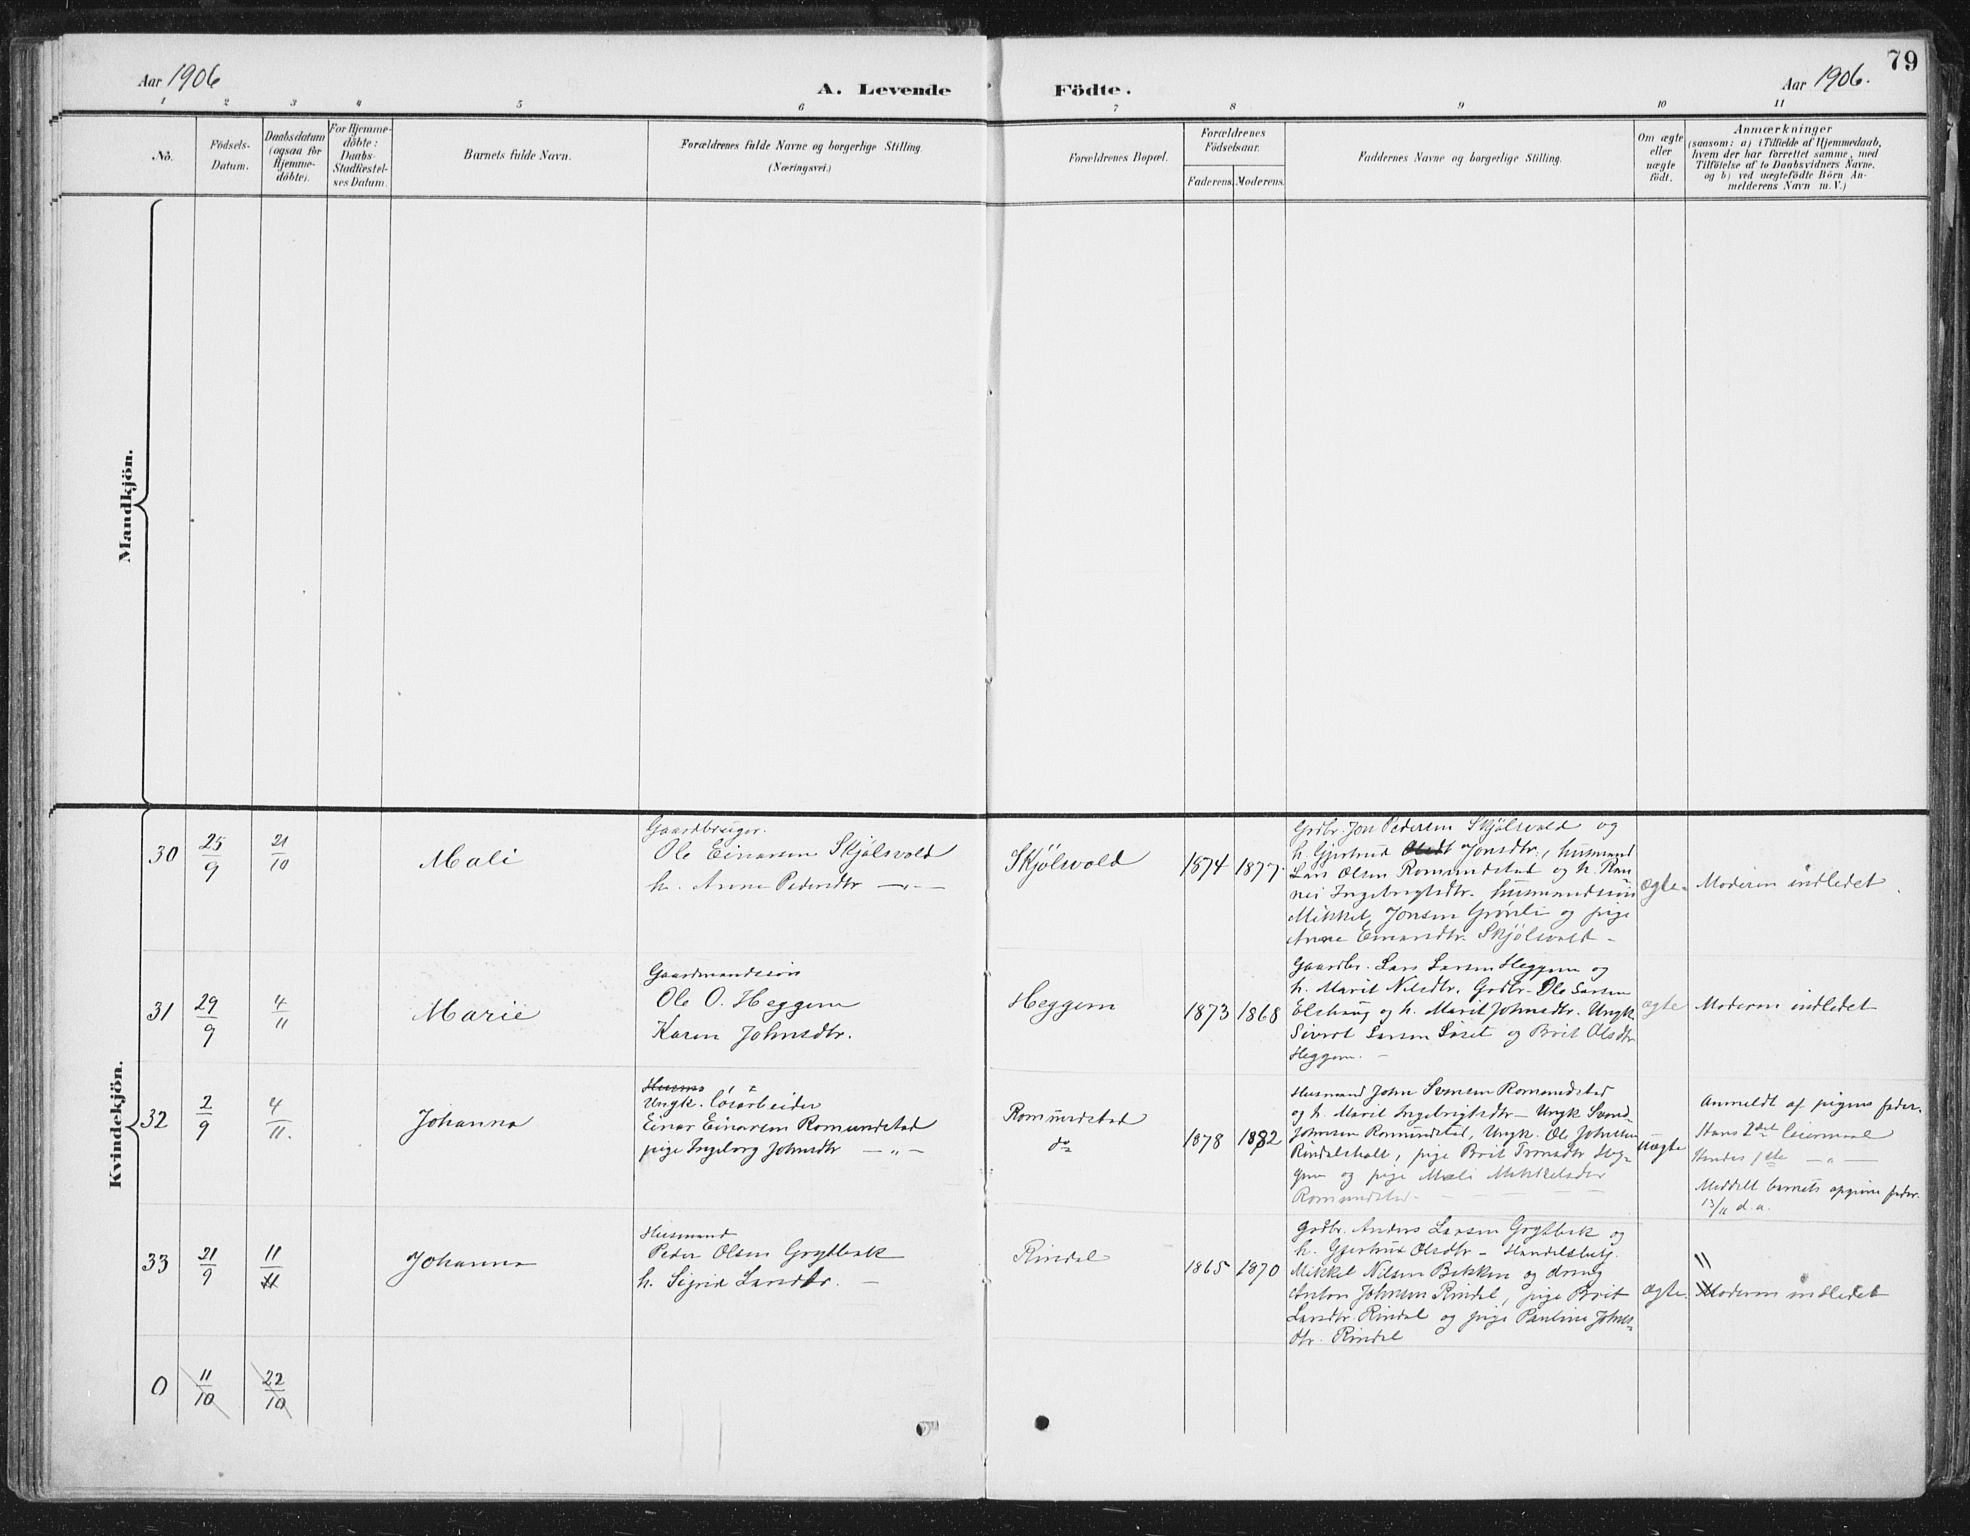 79
Aar 1906
A. Levende
Födte.
Aar 1906.
1 2 3 4 5 6 7 8 9 10 11
No.
Födsels-
Datum.
Daabsdatum
(ogsaa för
Hjemme-
döbte).
For Hjemme-
döbte:
Daabs-
Stadfæstel-
ses Datum.
Barnets fulde Navn.
Forældrenes fulde Navne og borgerlige Stilling.
(Næringsvei.)
Forældrenes Bopæl.
Forældrenes
Födselsaar.
Faderens.
Moderens.
Faddernes Navne og borgerlige Stilling.
Om ægte
eller
uægte
födt.
Anmærkninger
(saasom: a) i Tilfælde af Hjemmedaab,
hvem der har forrettet samme, med
Tilföielse af to Daabsvidners Navne,
og b) ved uægtefödte Börn An-
melderens Navn m. V.)
Mandkjön.
Kvindekjön.
30
25/9
21/10
Mali
Gaardbruger.
Ole Einarsen Skjölsvold
h. Anne Pedersdtr —„—
Skjölsvold
1874
1877.
Grdbr. Jon Pedersen Skjölsvold og
h. Gjertrud Jonsdtr., husmand
Lars Olsen Romundstad og h. Ran-
nei Ingebrigtsdtr. husmandssön
Mikkel Jonsen Grönli og pige
Anne Einarsdtr. Skjölsvold –
ægte.
Moderen indledet.
31
29/9
4/11
Marie
Gaardmandssön
Ole O. Heggem
Karen Johnsdtr.
Heggem
1873
1868
Gaardbr. Lars Larsen Heggem og
h. Marit Nilsdtr. Grdbr. Ole Larsen
Elshaug og h. Marit Johnsdtr. Ungk.
Sivert Larsen Löset og Brit Olsdtr
Heggem. –
ægte
Moderen indledet
32
2/9
4/11.
Johanna
Husma
Ungk. lösarbeider
Einar Einarsen Romundstad
pige Ingeborg Johnsdtr —„—
Romundstad
do
1878
1882
Husmand John Svensen Romundstad
og h. Marit Ingebrigtsdtr – Ungk Svend
Johnsen Romundstad, Ungk. Ole Johnsen
Rindalsholt, pige Brit Tronsdtr Heg-
gem og pige Mali Mikkelsdtr
Romundstad. – – – –
uægte
Anmeldt af pigens fader.
Hans 2det leiermaal
Hendes 1ste —„—
Meddelt barnets opgivne fader
13/11 d. a.
33
21/9
11/11
Johanna
Husmand
Peder Olsen Grytbak
h. Sigrid Larsdtr. –
Rindal
1865
1870
Grdbr. Anders Larsen Grytbak og
h. Gjertrud Olsdtr – Handelsbetj.
Mikkel Nilsen Bakken og dreng
Anton Johnsen Rindal, pige Brit
Larsdtr. Rindal og pige Pauline Johns-
dtr. Rindal
ægte.
11
Moderen indledet
0
11/10
22/10